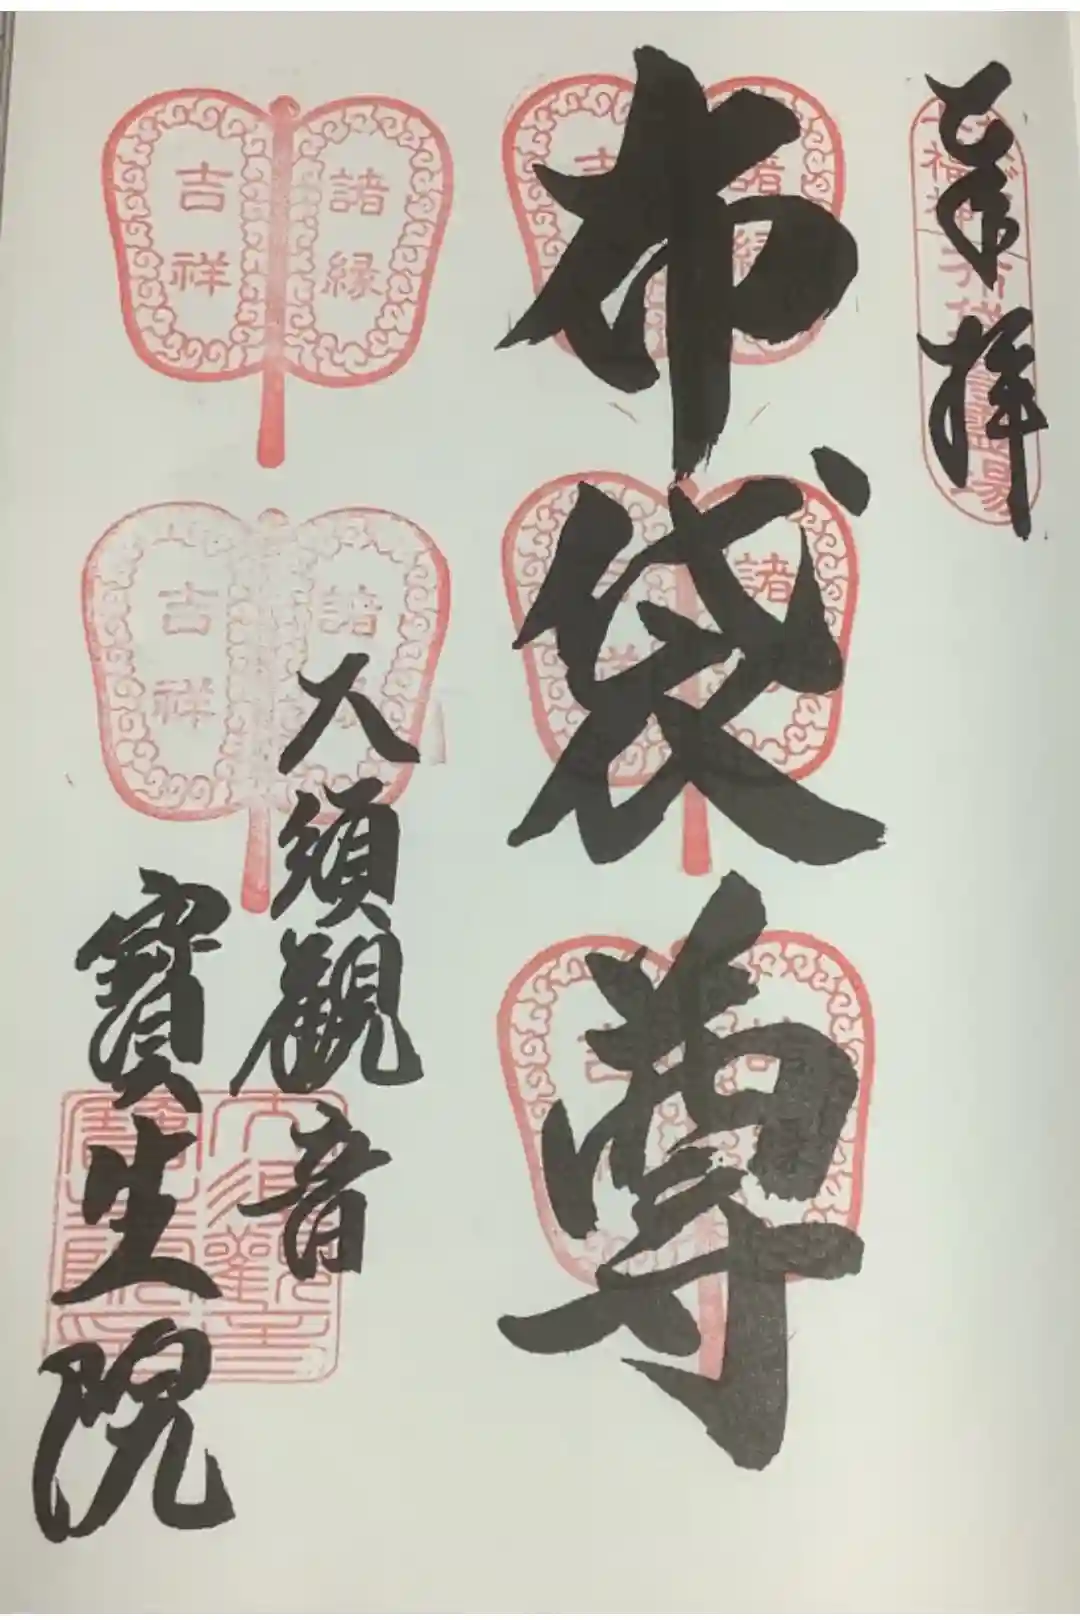 奉拝
布袋尊
大須観音
寳生院
諸縁
吉祥
諸縁
吉祥
諸
吉祥